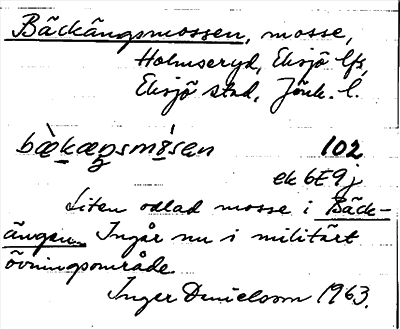 Bäckängsmossen, mosse,
Holmseryd, Eksjö lfs,
Eksjö stad, Jönk. l.
bæ̀kæŋsmɷ́sen 102
ek 6E9j
Liten odlad mosse i Bäck-
ängen. Ingår nu i militärt
övningsområde
Inger Danielsson 1963.